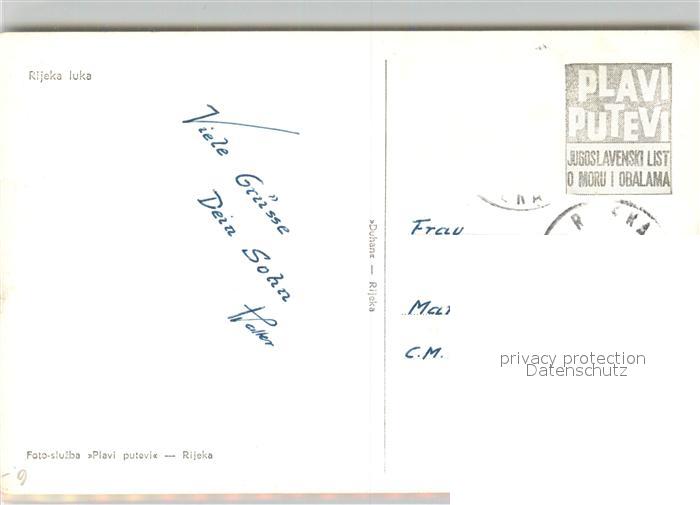 Rijeka luka
Viele Grüsse
Dein Sohn
Walter
»Duhan« — Rijeka
PLAVI
PUTEVI
JUGOSLAVENSKI LIST
O MORU I OBALAMA
Frau
C.M.
privacy protection
Datenschutz
Foto-služba »Plavi putevi« — Rijeka